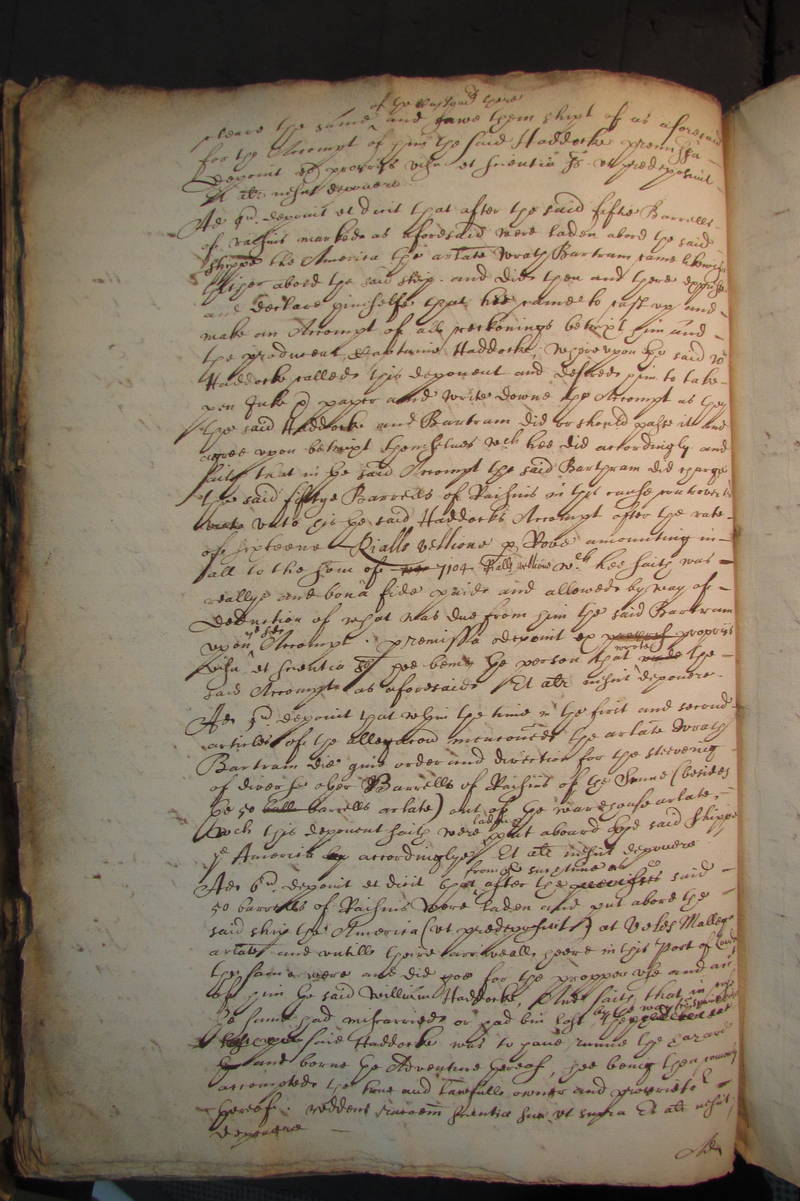 of the Custome there
cleare the same and sawe them shipt of as aforesaid
for the Accompt of him the said Haddocke premissa
deponit ex proprijs visu et scientia et ut predeposuit
Et aliter nescit deponere
Ad 4um deponit et dicit that after the said fiftie Barrells
of Raisins marked as aforesaid were laden abord the said
shippe the America the arlate Wrath Bartram came likewise
thither abord the said ship and did then and there expresse
and declare himselfe that hee came to cast up and
make an Accompt of all reckonings betwixt him and
the producent Haddocke, whereupon the said
Haddocke called this deponent and desired him to take
pen Inke & paper and write downe the Accompt as they
the said Haddocke and Bartram did or should passe it and
agree upon betwixt themselves wch hee did accordingly and
saith that in the said Accompt the said Bartram did charge
the said fiftye Barrells of Raisins in this cause controverted
unto the said Haddocks Accompt after the rate
of sixteene Rialls vellione p Rove amounting in
all to the som of 7104 Rialls vellione wch hee saith was
really and bona fide paid and allowed by way of
deduction of what was due from him the said Bartram
upon ye sd Accompt. premissa deponit ex proprijs
visu et scientia hee being the person that wrote the
said Accompt as aforesaid Et aliter nescit deponere.
Ad 5um deponit that within the time in the first and second
articles of the allegation mencioned the arlate Wrath
Bartram did give order and direction for the steeveing
of diverse other Barrells of Raisins of the Sunne (besides
the 50 barrells arlate) out of the warehouse arlate,
wch this deponent saith were laden put aboard the said shippe
ye America accordingly Et aliter nescit deponere
from the ... time
Ad 6um deponit et dicit that after the said
50 barrells of Raisins were laden and put abord the
said ship the America (ut predeposuit) at Veles Mallega
arlate and untill theire arrivall heere in this Port of London
the same were and did goe for the propper use and acc
of him the said William Haddocke, And saith that in case
the same had miscarried or had bin lost by the way
the said Haddocke was to have runne the hazard
and borne the Adventure thereof, hee being then commonly
accompted the true and lawfull owner and proprietor
thereof. reddens causam scientiae suae ut supra Et aliter nescit
deponere
Ad